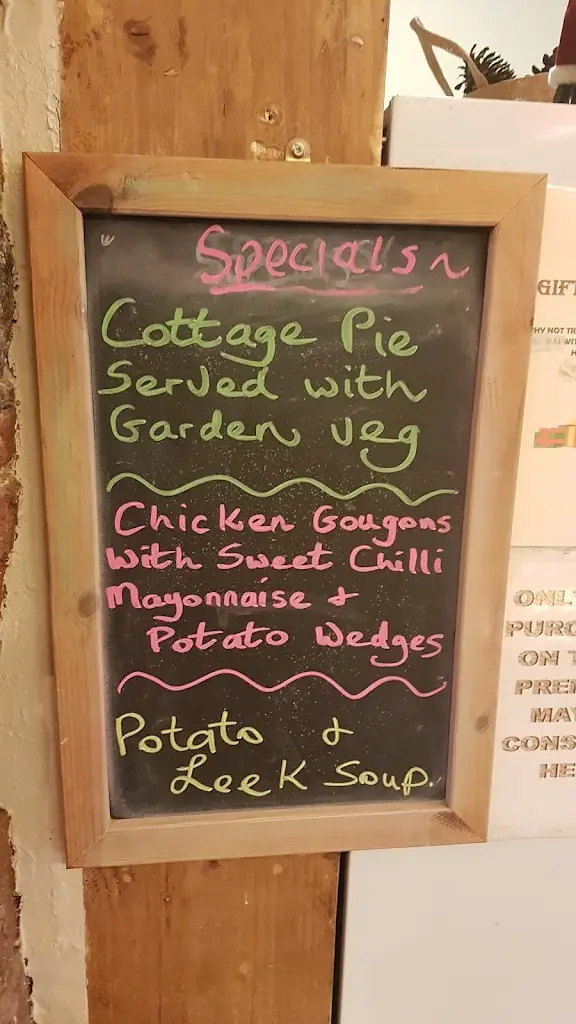 Specials ~
Cottage Pie
Served with
Garden veg
Chicken Gougons
with Sweet Chilli
Mayonnaise +
Potato Wedges
Potato &
Leek Soup.
GIFT
HY NOT TR
WIT
H
ONL
PURC
ON T
PREM
MAY
CONS
HE